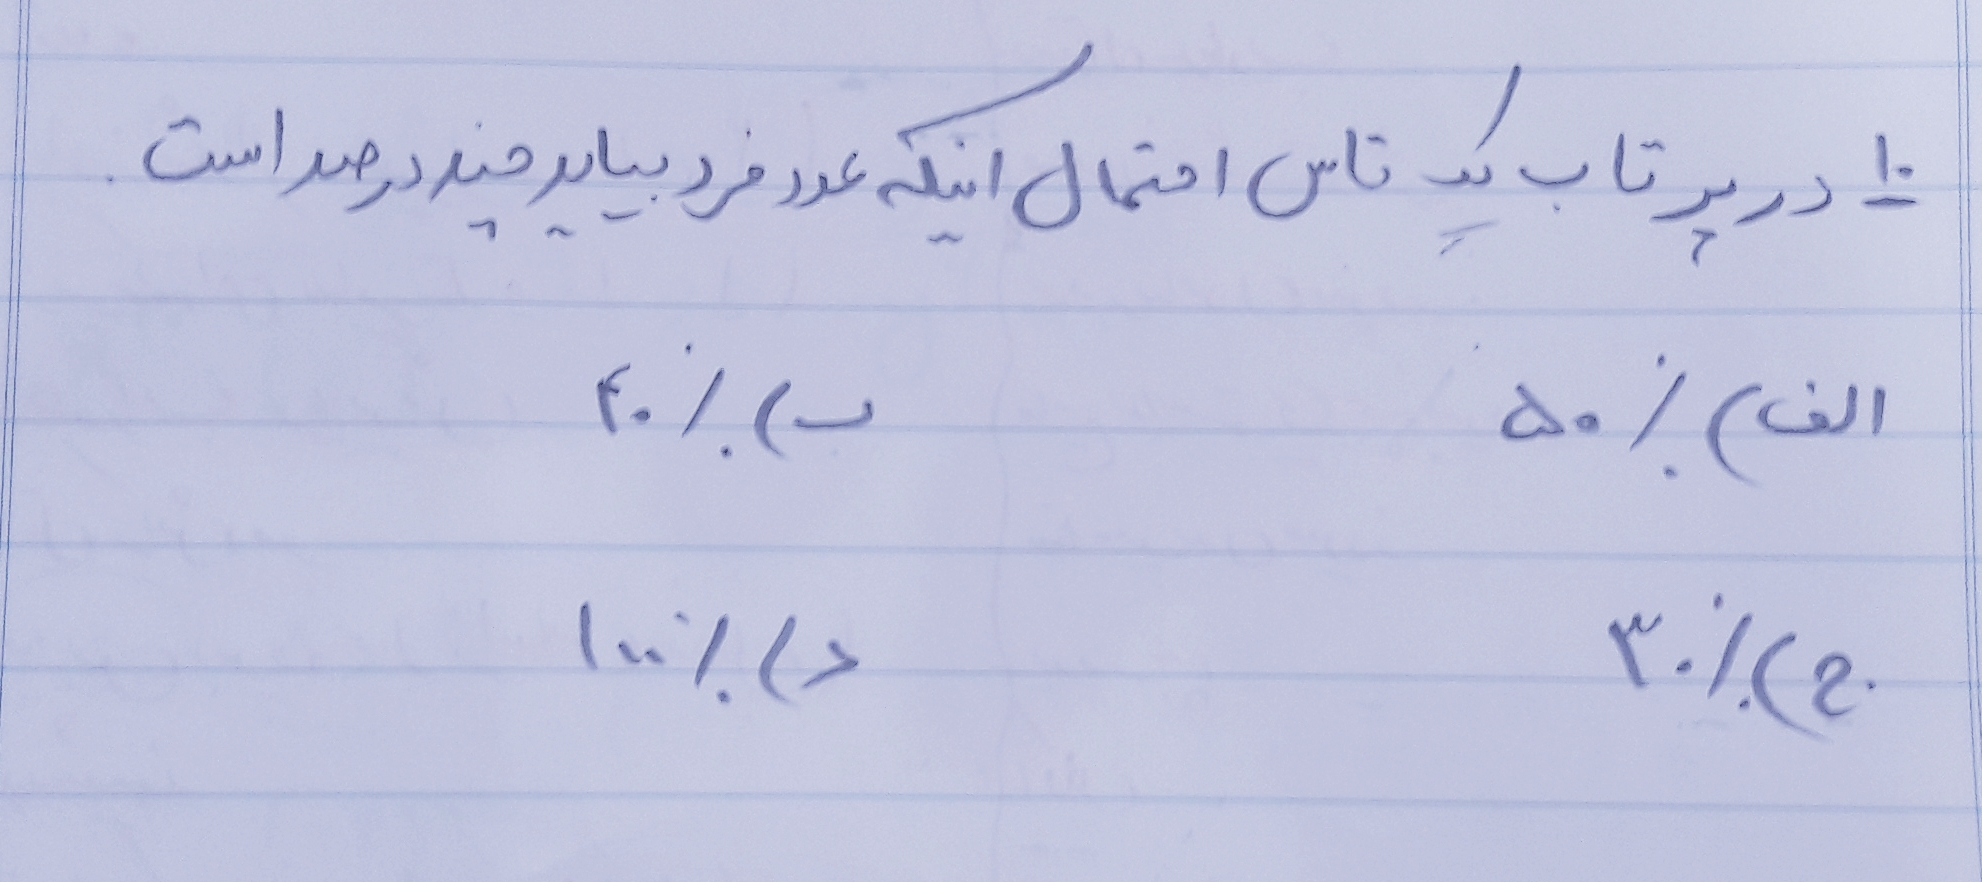 ۱۰ در پرتاب یک تاس احتمال اینکه عدد فرد بیاید چند درصد است.
الف) ٪۵۰ ب) ٪۴۰
ج) ٪۳۰ د) ٪۱۰۰